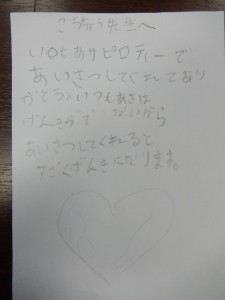 こうちょう先生へ
いつもあさピロティーで
あいさつしてくれてあり
がとう。いつもあさは
げんきがでないから
あいさつしてくれると
すごくげんきになります。